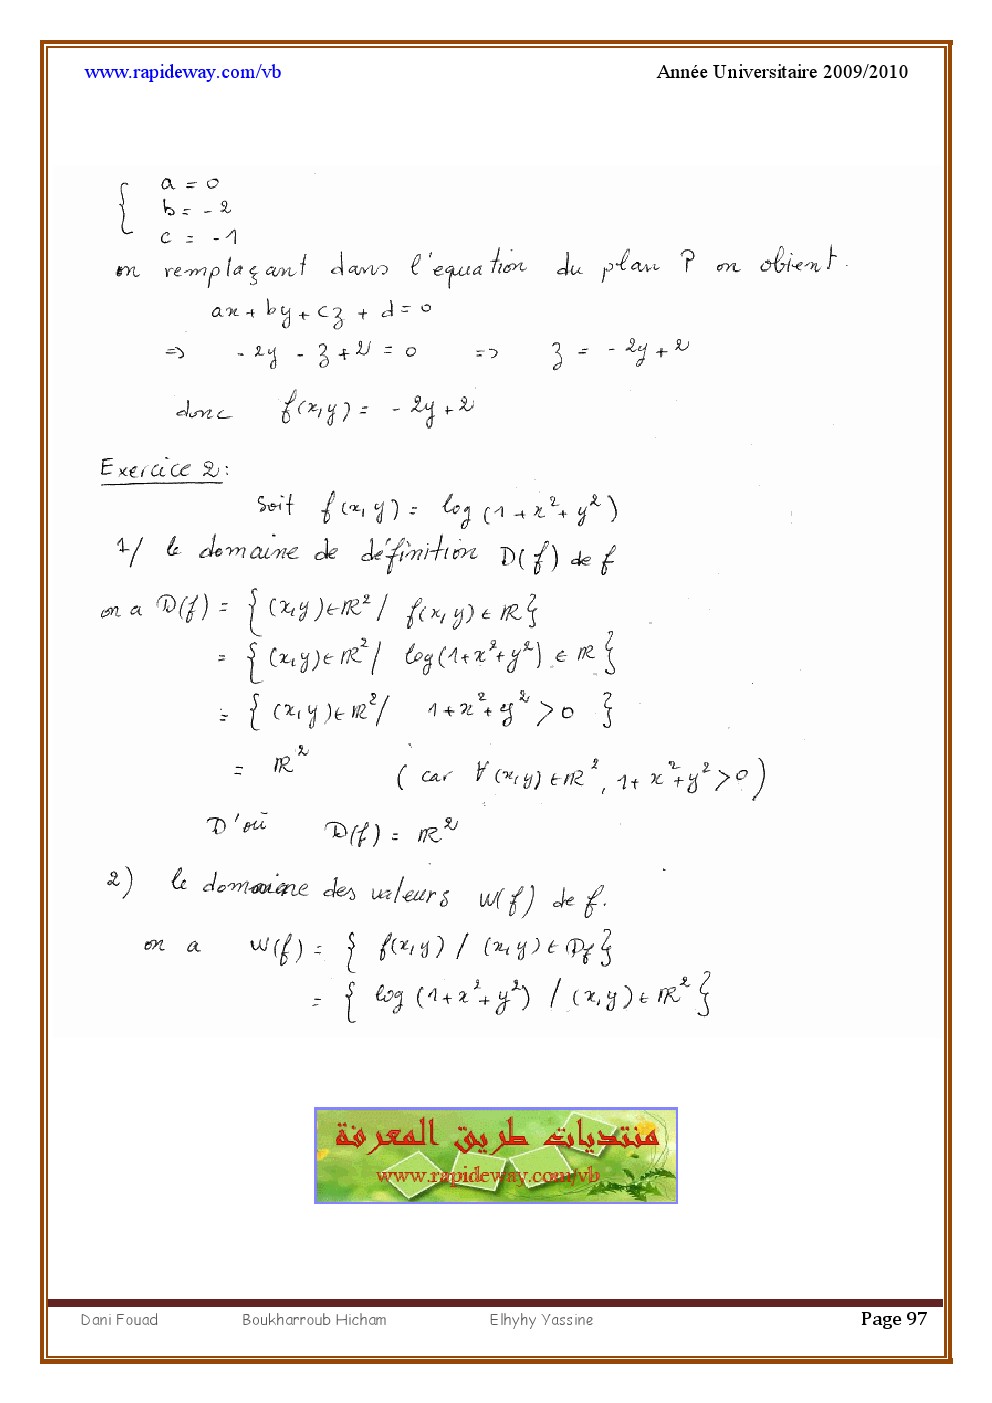 www.rapideway.com/vb Année Universitaire 2009/2010
{ a = 0
b = -2
c = -1
en remplaçant dans l'équation du plan P on obient.
ax + by + cz + d = 0
=> -2y - z + 2 = 0 => z = -2y + 2
donc f(x,y) = -2y + 2
Exercice 2 :
Soit f(x,y) = log(1+x²+y²)
1/ le domaine de définition D(f) de f
on a D(f) = { (x,y) ∈ ℝ² / f(x,y) ∈ ℝ }
= { (x,y) ∈ ℝ² / log(1+x²+y²) ∈ ℝ }
= { (x,y) ∈ ℝ² / 1+x²+y² > 0 }
= ℝ² ( car ∀(x,y) ∈ ℝ², 1+x²+y² > 0 )
D'où D(f) = ℝ²
2) le domaine des valeurs W(f) de f.
on a W(f) = { f(x,y) / (x,y) ∈ Df }
= { log(1+x²+y²) / (x,y) ∈ ℝ² }
منتديات طريق المعرفة
www.rapideway.com/vb
Dani Fouad Boukharroub Hicham Elhyhy Yassine Page 97